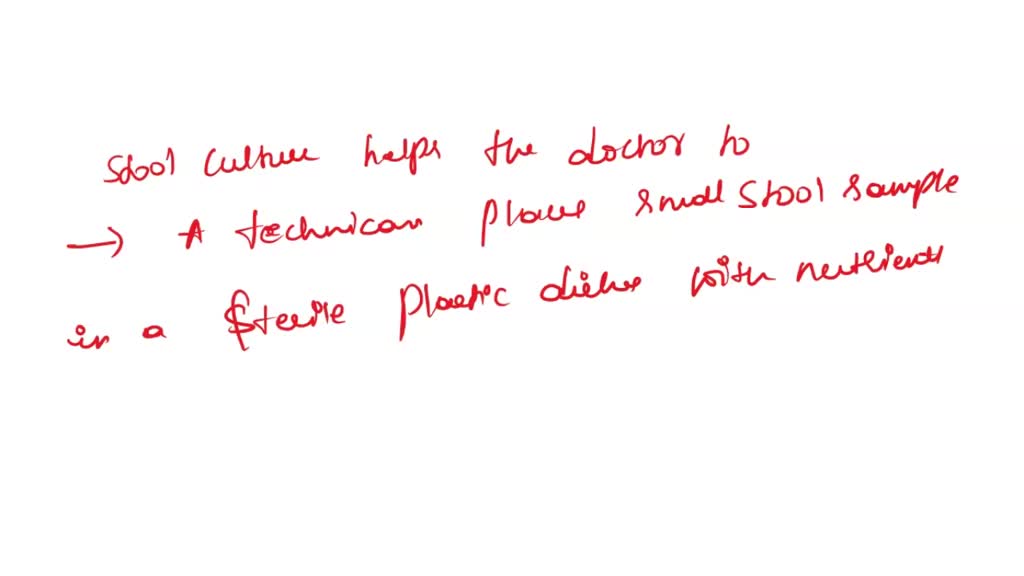 Stool culture helps the doctor to
→ A technican places small stool sample
in a sterile plastic dishes with nutrients